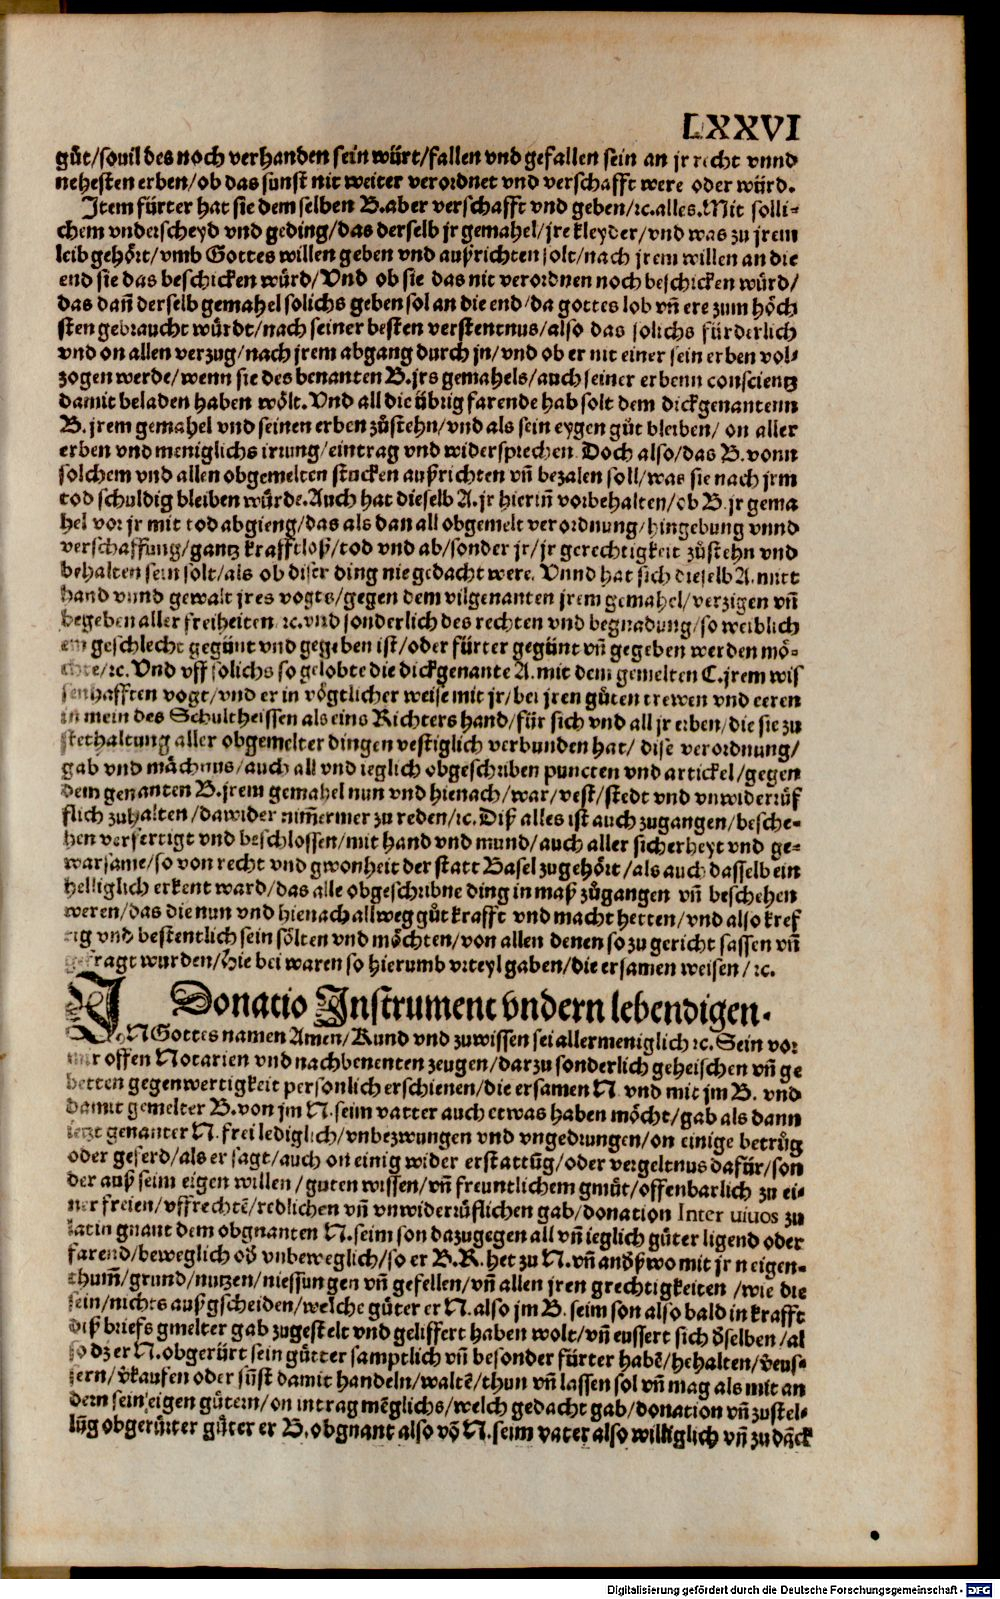 LXXVI
gůt/souil des noch verhanden sein würt/fallen vnd gefallen sein an jr recht vnnd
nehesten erben/ob das sunst nit weiter verordnet vnd verschafft were oder würd.
Item fürter hat sie dem selben B. aber verschafft vnd geben/ꝛc. alles. Mit solli-
chem vnderscheyd vnd geding/das derselb jr gemahel/jre kleyder/vnd was zu jrem
leib gehört/vmb Gottes willen geben vnd außrichten solt/nach jrem willen an die
end sie das beschicken würd/Vnd ob sie das nit verordnen noch beschicken würd/
das dañ derselb gemahel solichs geben sol an die end/da gottes lob vñ ere zum höch
sten gebraucht würdt/nach seiner besten verstentnus/also das solichs fürderlich
vnd on allen verzug/nach jrem abgang durch jn/vnd ob er nit einer sein erben vol-
zogen werde/wenn sie des benanten B. jrs gemahels/auch seiner erbenn conscientz
damit beladen haben wölt. Vnd all die übrig farende hab solt dem dickgenantenn
B. jrem gemahel vnd seinen erben zůstehn/vnd als sein eygen gůt bleiben/ on aller
erben vnd meniglichs irrung/eintrag vnd widersprechen. Doch also/das B. vonn
solchem vnd allen obgemelten stucken außrichten vñ bezalen soll/was sie nach jrm
tod schuldig bleiben würde. Auch hat dieselb A. jr hieriñ vorbehalten/ob B. jr gema
hel vor jr mit tod abgieng/das als dan all obgemelt verordnung/hingebung vnnd
verschaffung/gantz krafftloß/tod vnd ab/sonder jr/jr gerechtigkeit zůstehn vnd
behalten sein solt/als ob diser ding nie gedacht were. Vnnd hat sich dieselb A. mitt
hand vnnd gewalt jres vogts/gegen dem vilgenanten jrem gemahel/verzigen vñ
begeben aller freiheiten/ꝛc. vnd sonderlich des rechten vnd begnadung/so weiblich
em geschlecht gegünt vnd gegeben ist/oder fürter gegünt vñ gegeben werden mö-
chte/ꝛc. Vnd vff solichs so gelobte die dickgenante A. mit dem gemelten C. jrem wis
senhafften vogt/vnd er in vögtlicher weise mit jr/bei jren gůten trewen vnd eeren
in mein des Schultheissen als eins Richters hand/für sich vnd all jr erben/die sie zu
stethaltung aller obgemelter dingen vestiglich verbunden hat/ dise verordnung/
gab vnd mächnus/auch all vnd ieglich obgeschriben puncten vnd artickel/gegen
dem genanten B. jrem gemahel nun vnd hienach/war/vest/stedt vnd vnwiderrůf
flich zuhalten/dawider nim̃ermer zu reden/ꝛc. Diß alles ist auch zugangen/besche-
hen verfertigt vnd beschlossen/mit hand vnd mund/auch aller sicherheyt vnd ge-
warsame/so von recht vnd gwonheit der statt Basel zugehört/als auch dasselb ein
helliglich erkent ward/das alle obgeschribne ding in maß zůgangen vñ beschehen
weren/das die nun vnd hienach allweg gůt krafft vnd macht hetten/vnd also kref
tig vnd bestentlich sein sölten vnd möchten/von allen denen so zu gericht sassen vñ
gefragt wurden/Hie bei waren so hierumb vrteyl gaben/die ersamen weisen/ꝛc.
Donatio Instrument vndern lebendigen.
IN Gottes namen Amen/Kund vnd zuwissen sei allermeniglich ꝛc. Sein vor
mir offen Notarien vnd nachbenenten zeugen/darzu sonderlich geheischen vñ ge
betten gegenwertigkeit personlich erschienen/die ersamen N. vnd mit jm B. vnd
damit gemelter B. von jm N. seim vatter auch etwas haben möcht/gab als dann
ietzt genanter N. frei lediglich/vnbezwungen vnd vngedrungen/on einige betrůg
oder geferd/als er sagt/auch on einig wider erstattũg/oder vergeltnus dafür/son
der auß seim eigen willen/guten wissen/vñ freuntlichem gmüt/offenbarlich zu ei-
ner freien/vffrechtẽ/redlichen vñ vnwiderrüflichen gab/donation Inter viuos zu
latin gnant dem obgnanten N. seim son dazugegen all vñ ieglich gůter ligend oder
farend/beweglich oď vnbeweglich/so er B. R. het zu N. vñ andßwo mit jrn eigen-
thum̃/grund/nutzen/niessungen vñ gefellen/vñ allen jren grechtigkeiten /wie die
sein/nichts außgscheiden/welche gůter er N. also jm B. seim son also bald in krafft
diß briefs gmelter gab zugestelt vnd geliffert haben wolt/vñ eussert sich ďselben/al
so dz er N. obgerürt sein gůtter samptlich vñ besonder fürter habẽ/behalten/v̉eus-
sern/v̉kaufen oder sũst damit handeln/waltẽ/thun vñ lassen sol vñ mag als mit an
dern sein eigen gůtern/on intrag mẽglichs/welch gedacht gab/donation vñ zustel-
lũg obgerürter gůter er B. obgnant also võ N. seim vater also williglich vñ zu dãck
Digitalisierung gefördert durch die Deutsche Forschungsgemeinschaft - DFG